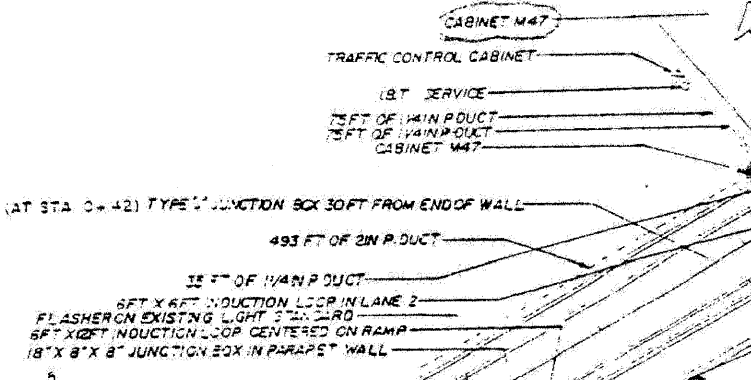 CABINET M47
TRAFFIC CONTROL CABINET
SERVICE
75FT OF 1 1/4 IN P. DUCT
75FT OF 1 1/4 IN P. DUCT
CABINET M47
(AT STA. 0+42) TYPE JUNCTION BOX 30FT FROM END OF WALL
493 FT OF 2IN P. DUCT
35 FT OF 1 1/4 IN P DUCT
6FT X 6FT INDUCTION LOOP IN LANE 2
FLASHER ON EXISTING LIGHT STANDARD
6FT X INDUCTION LOOP CENTERED ON RAMP
18" X 8" X 8" JUNCTION BOX IN PARAPET WALL